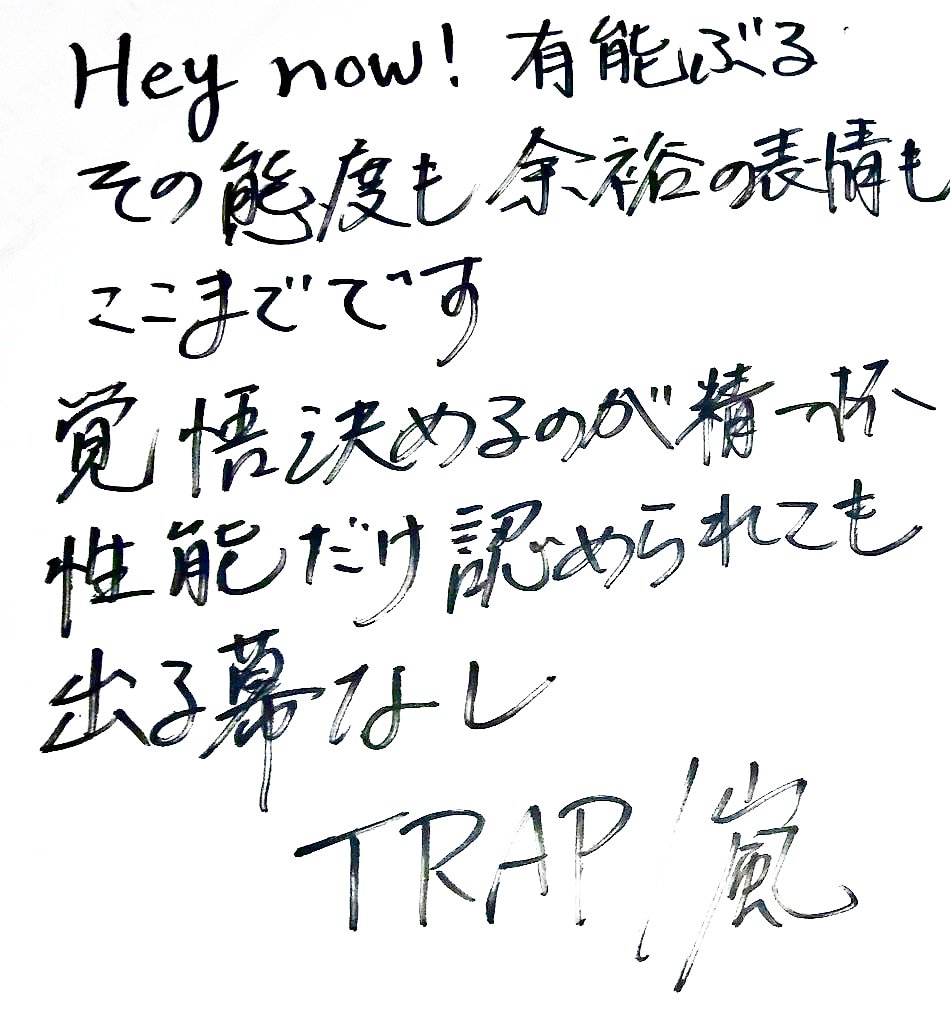 Hey now! 有能ぶる
その態度も 余裕の表情も
ここまでです
覚悟決めるのが精一杯
性能だけ認められても
出る幕なし
TRAP/嵐